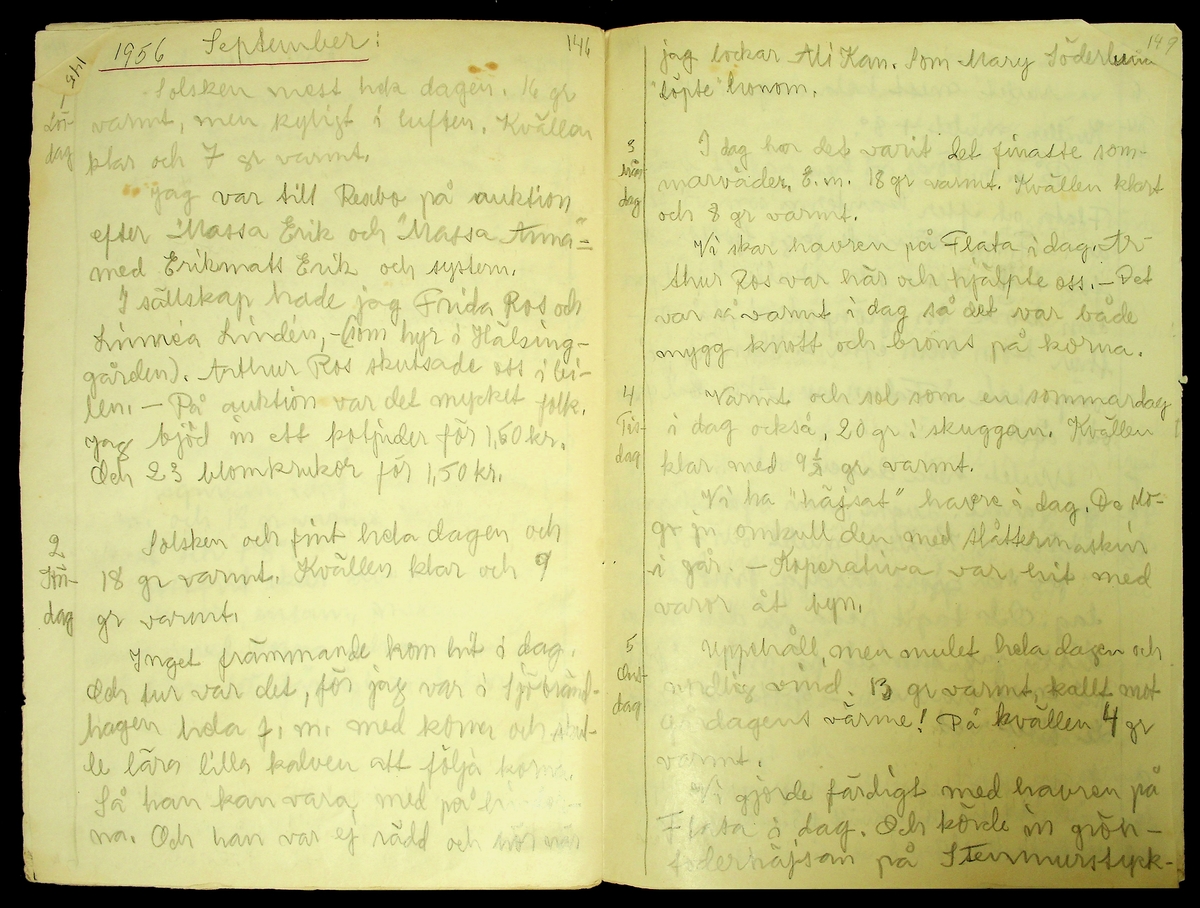 1956 September:
146
145
1
Lör-
dag
Solsken mest hela dagen. 16 gr
varmt, men kyligt i luften. Kvällen
klar och 7 gr varmt.
Jag var till Rexbo på auktion
efter "Massa Erik och "Massa Anna"=
med Erikmats Erik och system.
I sällskap hade jag Frida Ros och
Linnéa Lindén, -(som hyr i Hälsing-
gården). Arthur Ros skutsade oss i bi-
len. - På auktion var det mycket folk.
Jag bjöd in ett kopjuder för 1,50 kr.
Och 23 blomkrukor för 1,50 kr.
2
Sön-
dag
Solsken och fint hela dagen och
18 gr varmt. Kvällen klar och 9
gr varmt.
Inget främmande kom hit i dag.
Och tur var det, för jag var i
hagen hela f. m. med korna och skul-
le lära lilla kalven att följa korna.
Så han kan vara med på
na. Och han var ej rädd och
149
jag lockar Ali Kan. Som Mary Söderlund
"döpte" honom.
3
Mån-
dag
I dag har det varit det finaste som-
marväder. E. m. 18 gr varmt. Kvällen klart
och 8 gr varmt.
Vi skar havren på Flata i dag. Ar-
thur Ros var här och hjälpte oss. - Det
var så varmt i dag så det var både
mygg knott och broms på korna.
4
Tis-
dag
Varmt och sol som en sommardag
i dag också, 20 gr i skuggan. Kvällen
klar med 9½ gr varmt.
Vi ha "häjsat" havre i dag. De slo-
gr ju omkull den med slåttermaskin
i går. - Koperativa var hit med
varor åt byn.
5
Ons-
dag
Uppehåll, men mulet hela dagen och
nordlig vind. 13 gr varmt, kallt mot
gårdagens värme! På kvällen 4 gr
varmt.
Vi gjorde färdigt med havren på
Flata i dag. Och körde in grön-
foderhäjsan på Stenmurstyck-